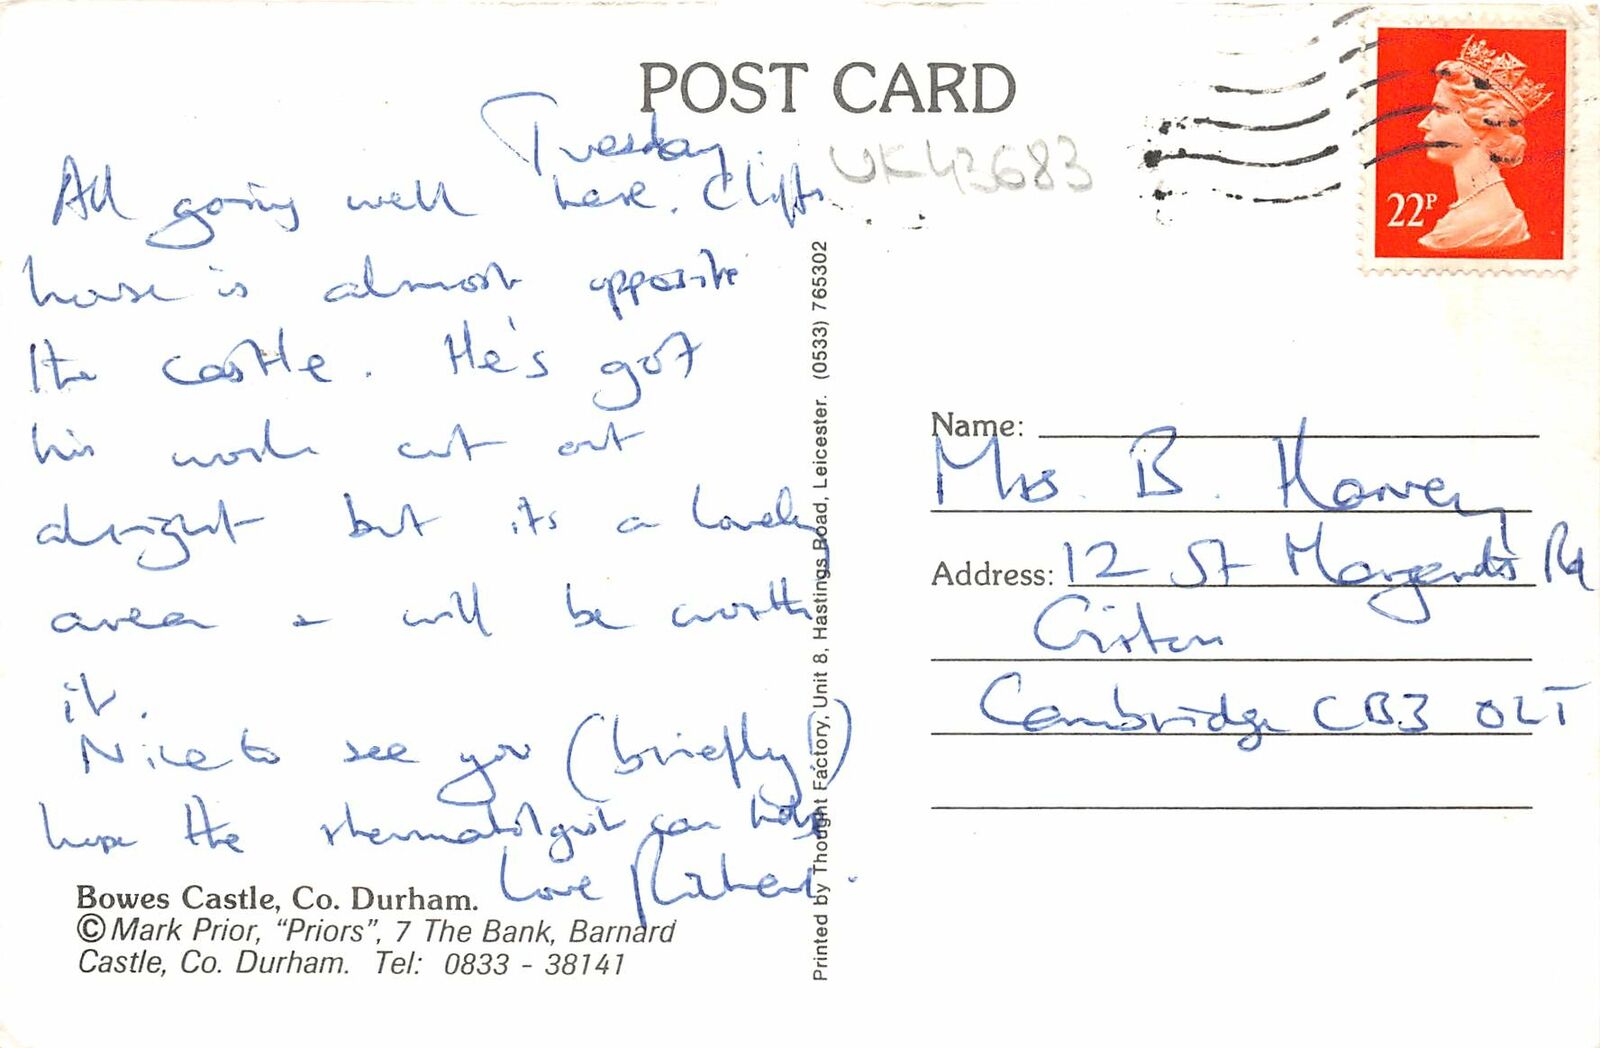 POST CARD
Tuesday.
UK43683
22P
All going well here. Cliff's
house is almost opposite
the castle. He's got
his work cut out
alright but its a lovely
area & will be worth
it.
Nice to see you (briefly!)
hope the rheumatologist can help
Love Richard.
Bowes Castle, Co. Durham.
© Mark Prior, "Priors", 7 The Bank, Barnard
Castle, Co. Durham. Tel: 0833 - 38141
Printed by Thought Factory, Unit 8, Hastings Road, Leicester. (0533) 765302
Name:
Mrs. B. Harvey
Address: 12 St Margarets Rd
Girton
Cambridge CB3 0LT